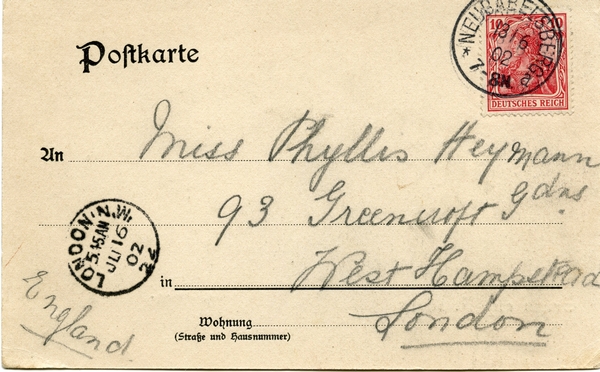 Postkarte
NEUBABELSBERG
13/6
02
7-8N.
10
DEUTSCHES REICH
An Miss Phyllis Heymann
93 Greencroft Gdns
in West Hampstead
Wohnung London
(Straße und Hausnummer)
LONDON.N.W.
5.15AM
JU 16
02
22
England